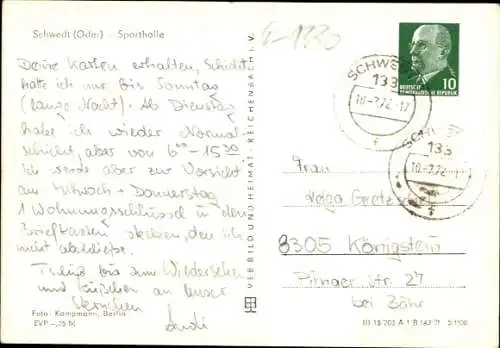 Schwedt (Oder) - Sporthalle
Deine Karten erhalten, Schicht
hatte ich nur bis Sonntag
(lange Nacht). Ab Dienstag
habe ich wieder Normal-
schicht, aber von 6⁰⁰ - 15³⁰
Ich werde aber zur Vorsicht
am Mittwoch + Donnerstag
1 Wohnungsschlüssel in den
Briefkasten stecken, den ich
nicht abschließe.
Tschüß bis zum Wiedersehen
und Küßchen an unser
Foto: Kampmann, Berlin
EVP -,25 M
VEB BILD UND HEIMAT · REICHENBACH I. V.
DEUTSCHE
DEMOKRATISCHE REPUBLIK
10
SCHWE
133
133
Frau
Helga Gretzschel
8305 Königstein
Pirnaer Str. 27
bei Bähr